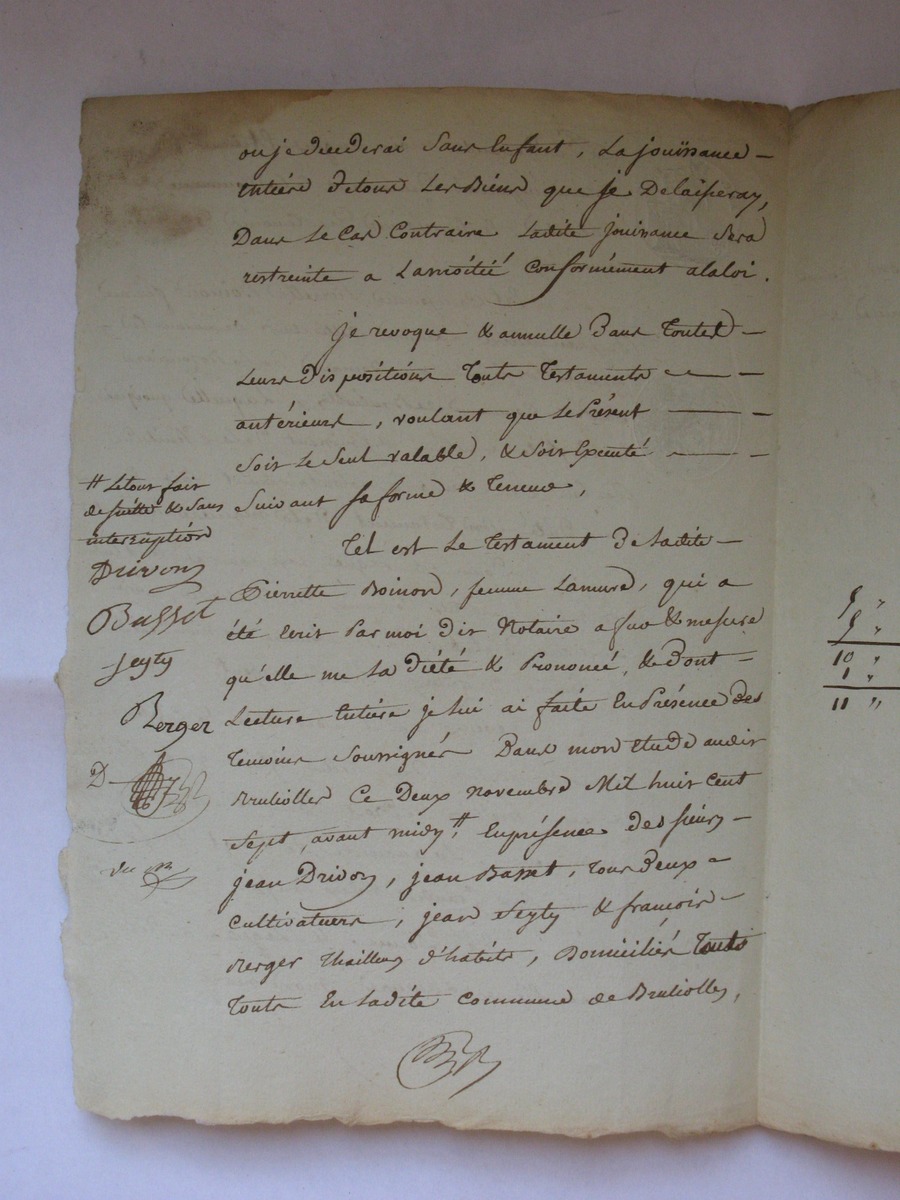 ou je décéderai Sans Enfant, La jouissance
entiére de tous Les Biens que je Delaisseray,
Dans Le Cas Contraire Ladite jouissance Sera
restreinte a Lamoitié conformément alaloi.
je revoque & annulle Dans Toutes
Leurs Dispositions Touts Testaments
antérieurs, voulant que Le Présent
Soit Le Seul valable, & Soit Executé
Suivant Sa forme & Teneur,
Tel est Le Testament de Ladite
Pierrette Boinon, femme Lamure, qui a
été Ecrit Par moi dit Notaire a fur & mesure
qu'elle me L'a Dicté & Prononcé, & Dont
Lecture Entiére je Lui ai faite En Présence Des
Temoins Soussignés Dans mon étude audit
Brullioles Ce Deux Novembre Mil huit Cent
Sept, avant midy, # En présence des Sieurs
jean Drivon, jean Basset, Tous Deux
Cultivateurs, jean Seyty & françois
Berger Thailleur d'habits, Domiciliés Touts
Touts En Ladite Commune de Brullioles,
# Letout fait
de suitte & Sans
interruption
Drivon
Basset
Seyty
Berger
D
5 "
5 "
10 "
1 "
11 "